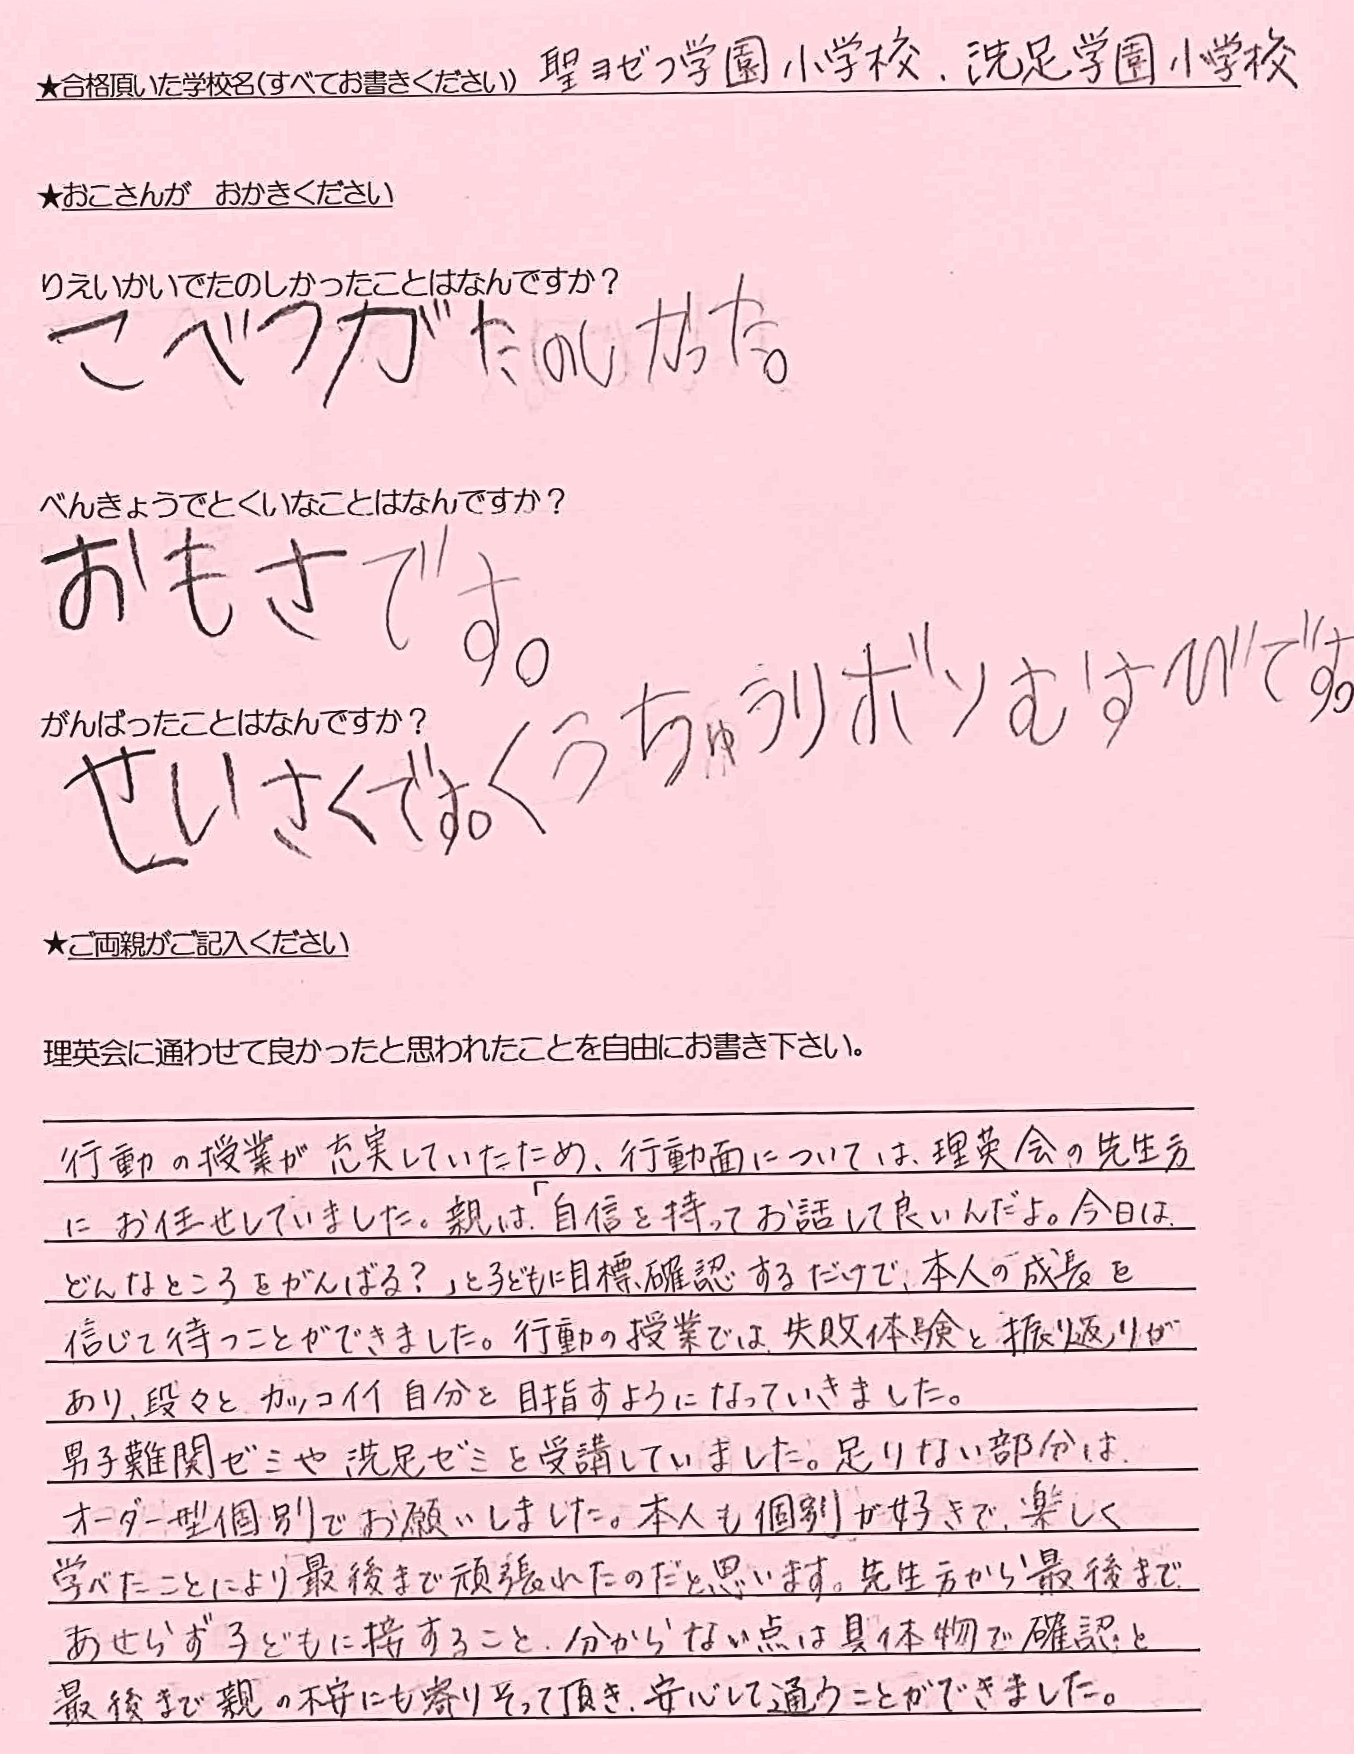 ★合格頂いた学校名(すべてお書きください) 聖ヨゼフ学園小学校、洗足学園小学校
★おこさんが　おかきください
りえいかいでたのしかったことはなんですか？
こべつがたのしかった。
べんきょうでとくいなことはなんですか？
おもさです。
がんばったことはなんですか？
せいさくです。くうちゅうリボンむすびです。
★ご両親がご記入ください
理英会に通わせて良かったと思われたことを自由にお書き下さい。
行動の授業が充実していたため、行動面については、理英会の先生方
にお任せしていました。親は、「自信を持ってお話して良いんだよ。今日は、
どんなところをがんばる？」と子どもに目標確認するだけで、本人の成長を
信じて待つことができました。行動の授業では、失敗体験と振り返りが
あり、段々とカッコイイ自分を目指すようになっていきました。
男子難関ゼミや洗足ゼミを受講していました。足りない部分は、
オーダー型個別でお願いしました。本人も個別が好きで、楽しく
学べたことにより最後まで頑張れたのだと思います。先生方から最後まで
あせらず子どもに接すること、分からない点は具体物で確認と
最後まで親の不安にも寄りそって頂き、安心して通うことができました。